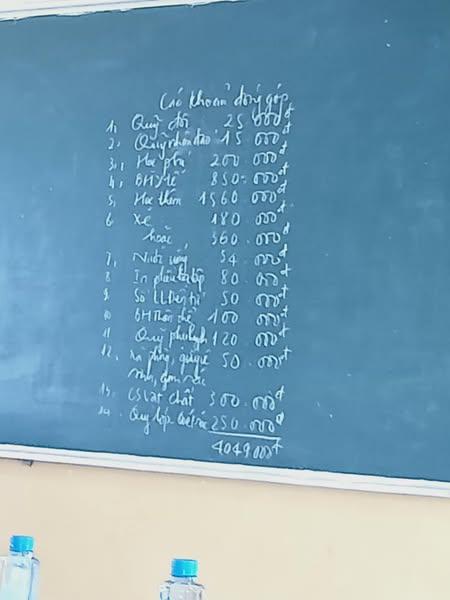 Các khoản đóng góp
1, Quỹ đội 25 000đ
2, Quỹ nhân đạo 15.000đ
3, Học phí 200.000đ
4, BHYTế 850.000đ
5, Học thêm 1560.000đ
6. Xe 180.000đ
hoặc 360.000đ
7, Nước uống 54.000đ
8 In phiếu tập 80.000đ
9 Sổ LLĐiện tử 50 000đ
10 BHThân thể 100 000đ
11 Quỹ phụ huynh 120.000đ
12. 50.000đ
13. CSVật chất 300.000đ
14. Quỹ lớp 250.000đ
4049000đ